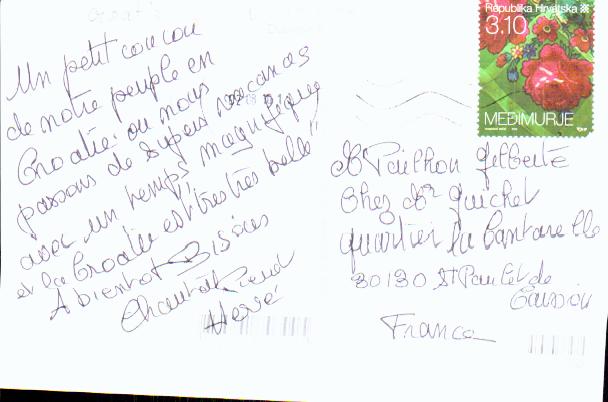 Un petit coucou
de notre peuple en
Croatie. ou nous
passons de supers vacances
avec un temps magnifique
et la Croatie est très très belle
A bientot Bisous
Hervé
Republika Hrvatska
3.10
MEĐIMURJE
Pailhon Gilberte
Chez Mr Guichet
quartier la Cantarelle
30130 St Paulet de
Caisson
France